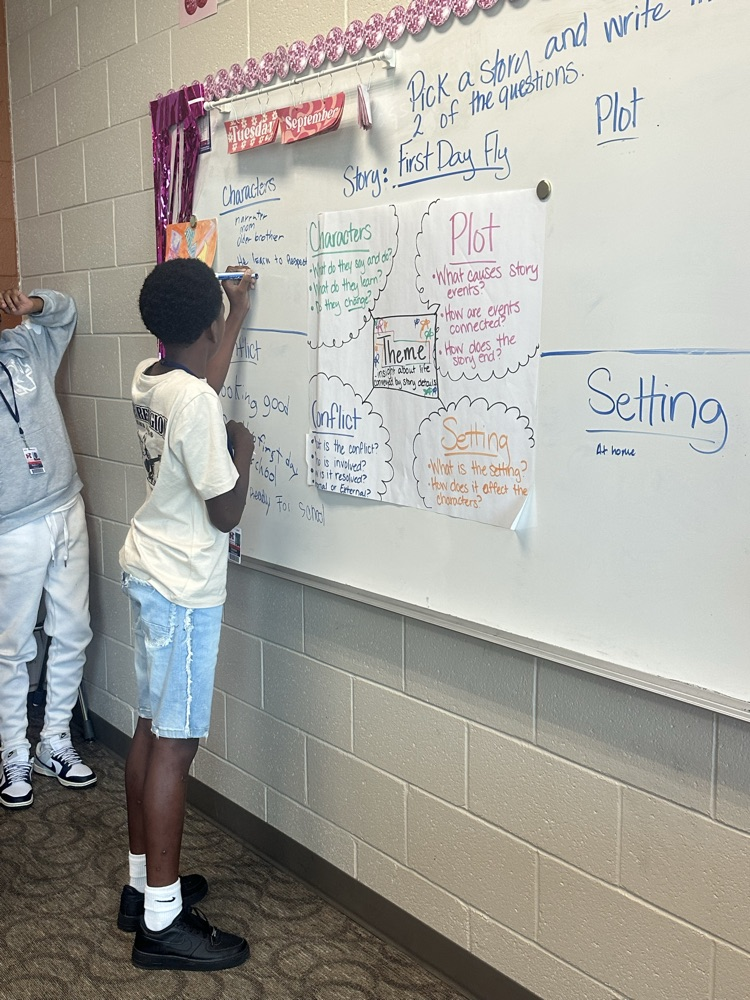 Pick a story and write
2 of the questions.
Tuesday
September
Story: First Day Fly
Plot
Characters
narrator
mom
older brother
He learn to Respect
looking good
first day
school
ready For school
Characters
• What do they say and do?
• What do they learn?
• Do they change?
Plot
• What causes story
events?
• How are events
connected?
• How does the
story end?
Theme
insight about life
conveyed by story details
Conflict
is the conflict?
is involved?
is it resolved?
or External?
Setting
• What is the setting?
• How does it affect the
characters?
Setting
At home